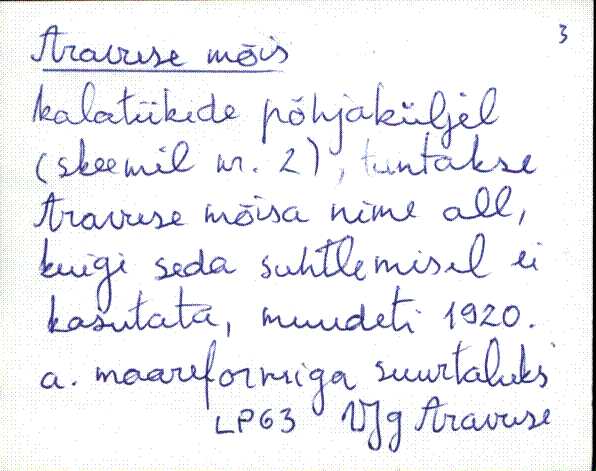 3
Aravuse mõis
kalatiikide põhjaküljel
(skeemil nr. 2), tuntakse
Aravuse mõisa nime all,
kuigi seda suhtlemisel ei
kasutata, muudeti 1920.
a. maareformiga suurtaluks
LP63 VJg Aravuse